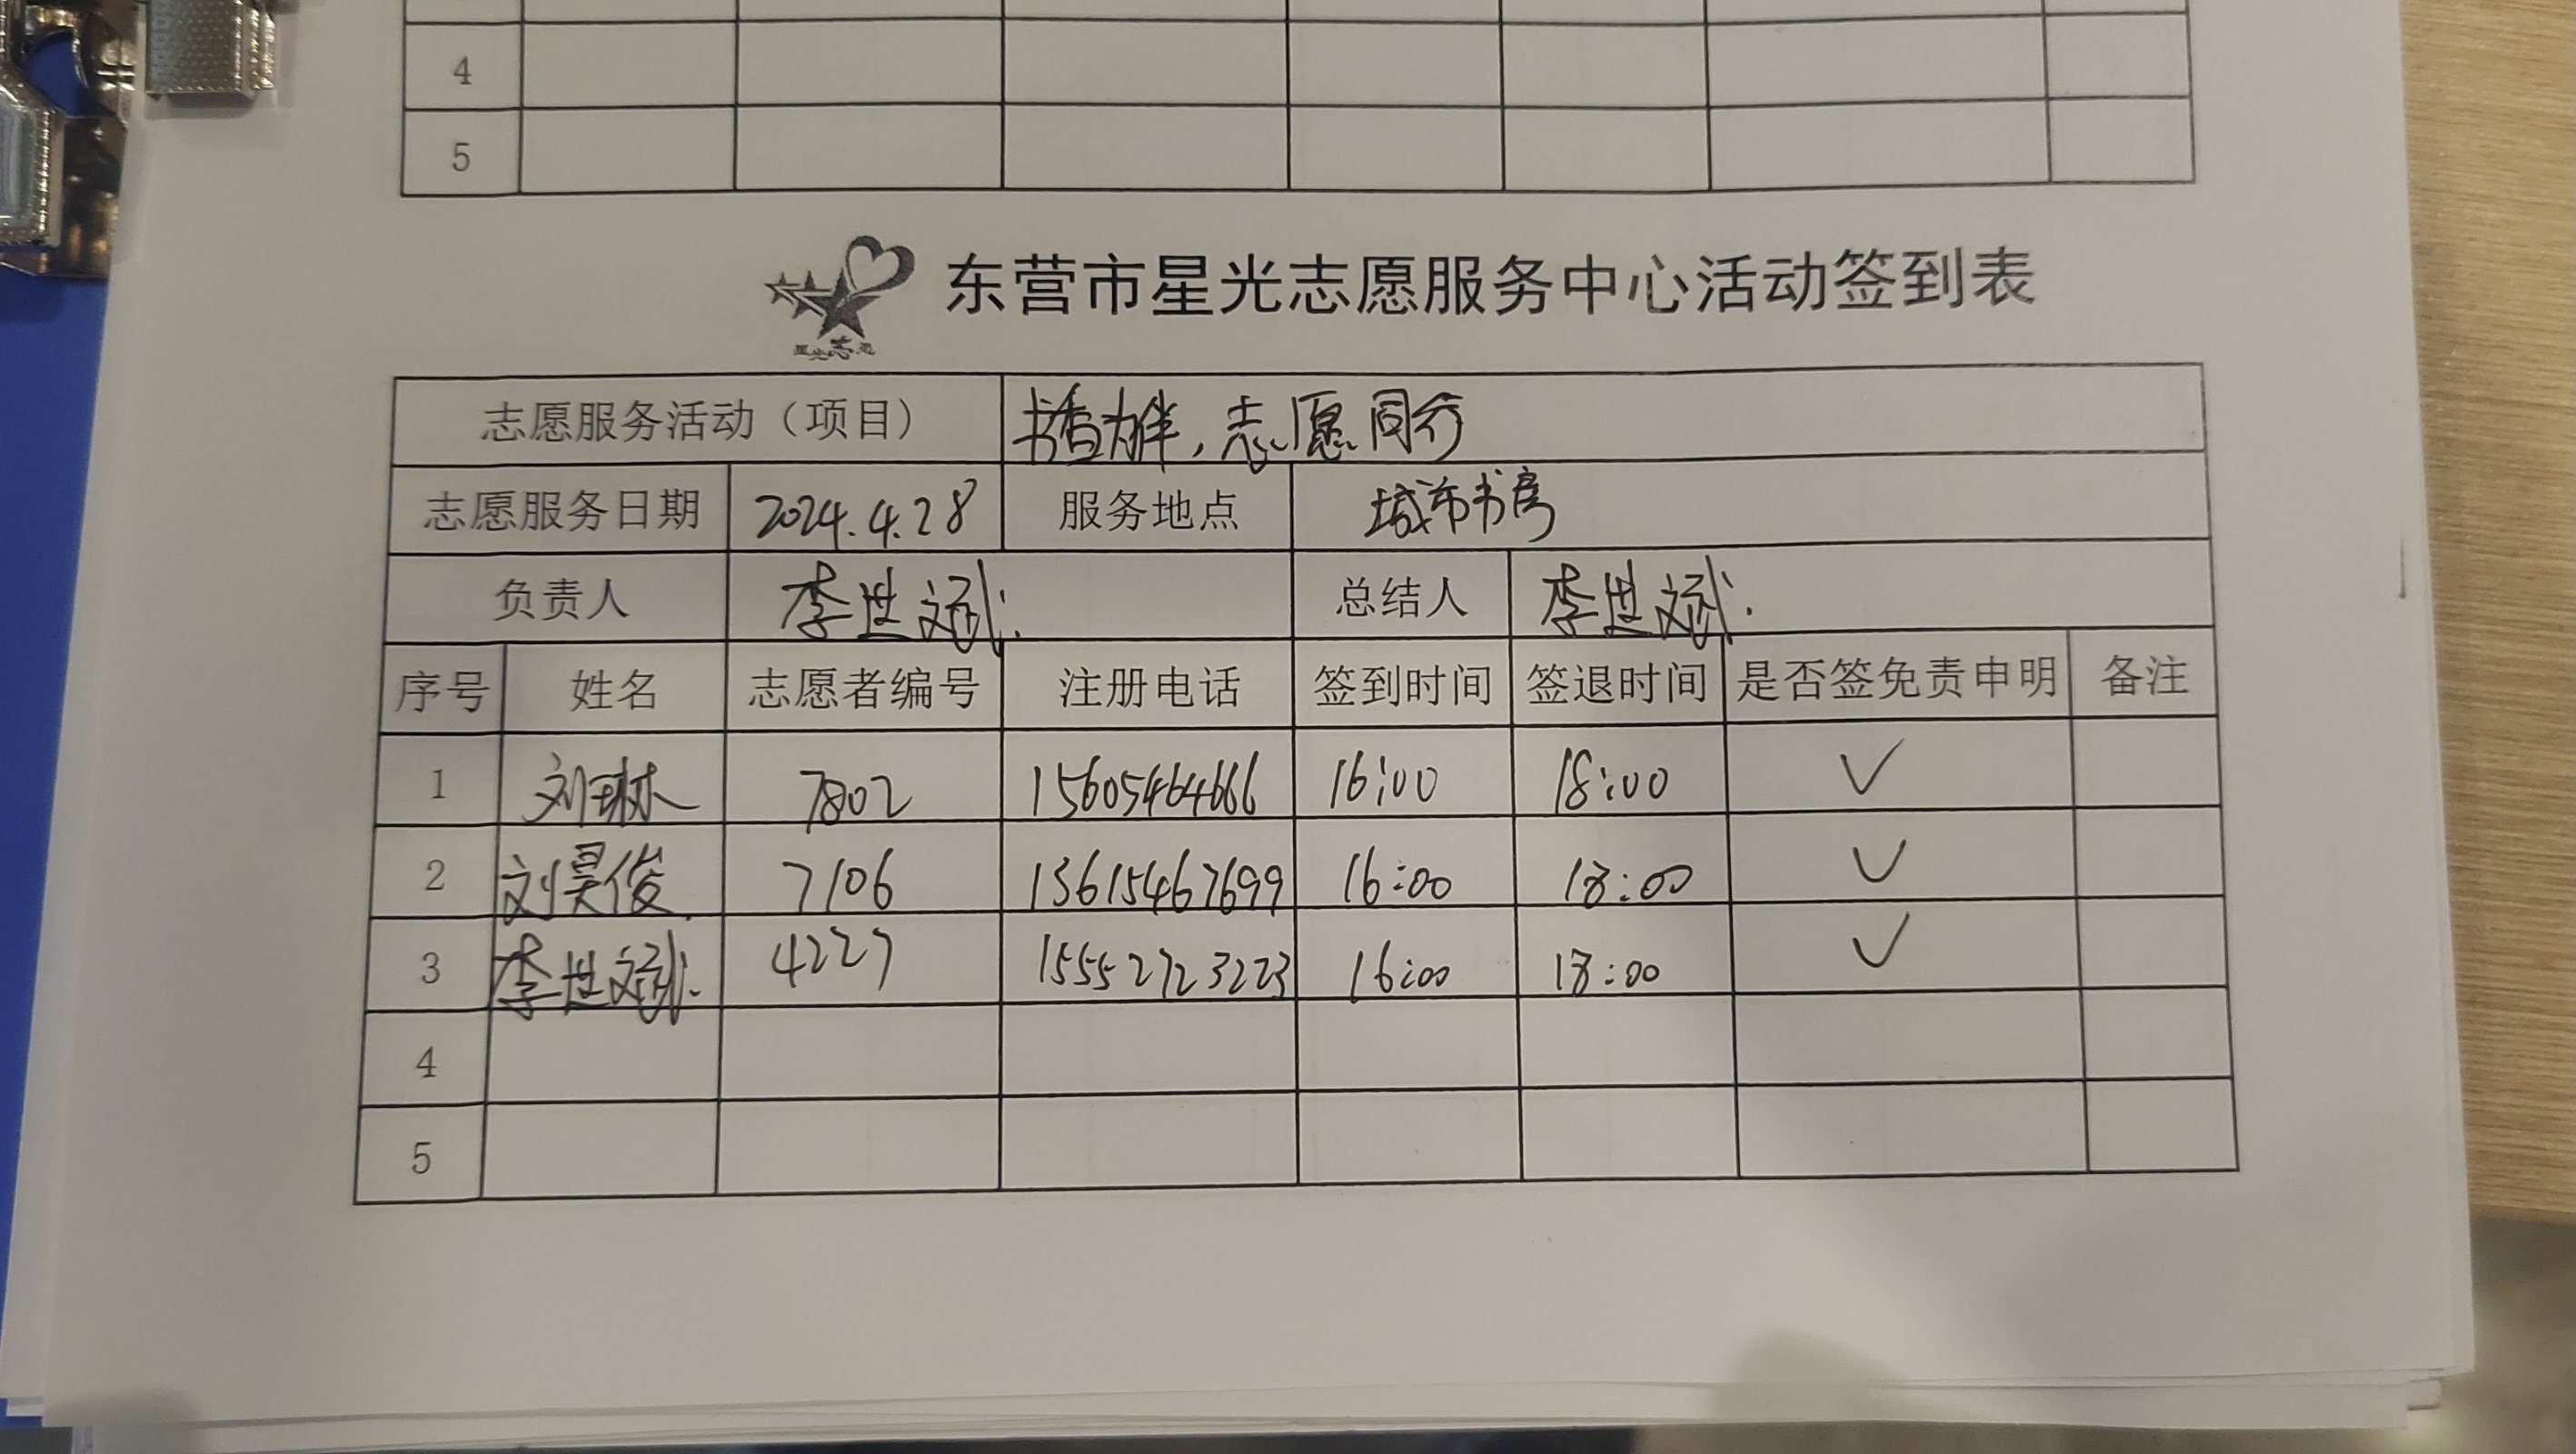 4
5
东营市星光志愿服务中心活动签到表
星光志愿
志愿服务活动（项目） 书香为伴，志愿同行
志愿服务日期 2024.4.28 服务地点 城市书房
负责人 李世斌 总结人 李世斌
序号 姓名 志愿者编号 注册电话 签到时间 签退时间 是否签免责申明 备注
1 刘琳 7802 15605464666 16:00 18:00 ✓
2 刘昊俊 7106 13615467699 16:00 18:00 ✓
3 李世斌 4227 15552723223 16:00 18:00 ✓
4
5